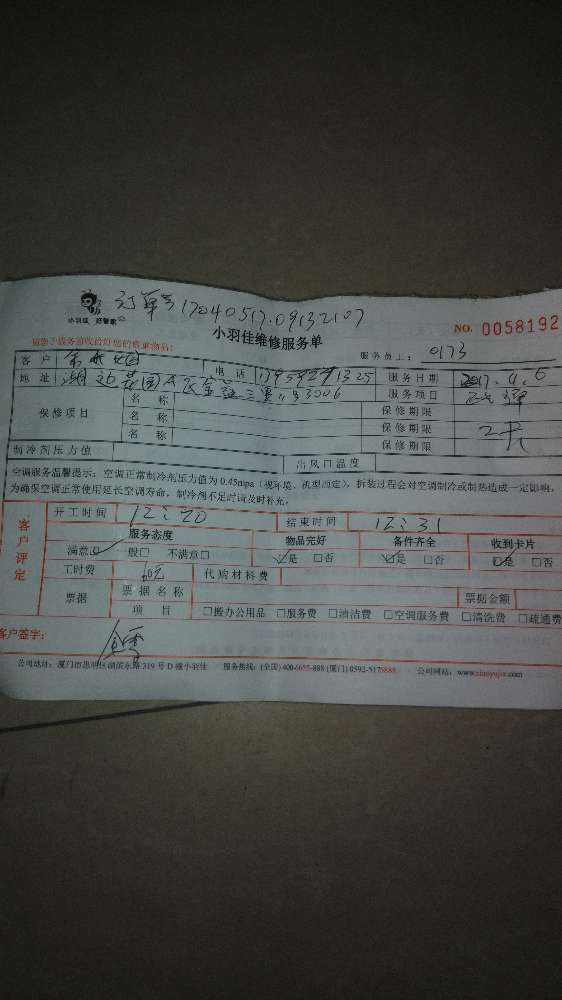 小羽佳 好管家
订单号17040517.09132107
小羽佳维修服务单
NO. 0058192
请您予服务前收拾好您的贵重物品:
服务员工: 0173
客户 电话 服务日期 2017.4.6
地址 花园 3006 服务项目
名称 保修期限
保修项目 名称 保修期限
名称 保修期限
制冷剂压力值 出风口温度
空调服务温馨提示:空调正常制冷剂压力值为 0.45mpa(视环境、机型而定),拆装过程会对空调制冷或制热造成一定影响,
为确保空调正常使用延长空调寿命,制冷剂不足时请及时补充。
客户评定
开工时间 12:20 结束时间 12:31
服务态度 物品完好 备件齐全 收到卡片
满意☑ 一般□ 不满意□ ☑是 □否 ☑是 □否 ☑是 □否
工时费 60元 代购材料费
票据 票据名称 票据金额
项目 □搬办公用品 □服务费 □清洁费 □空调服务费 □清洗费 □疏通费
客户签字:
公司地址:厦门市思明区湖滨东路 319 号 D 楼小羽佳 服务热线:(全国) 400-6655-888 (厦门) 0592-5175888 公司网站:www.xiaoyujia.com